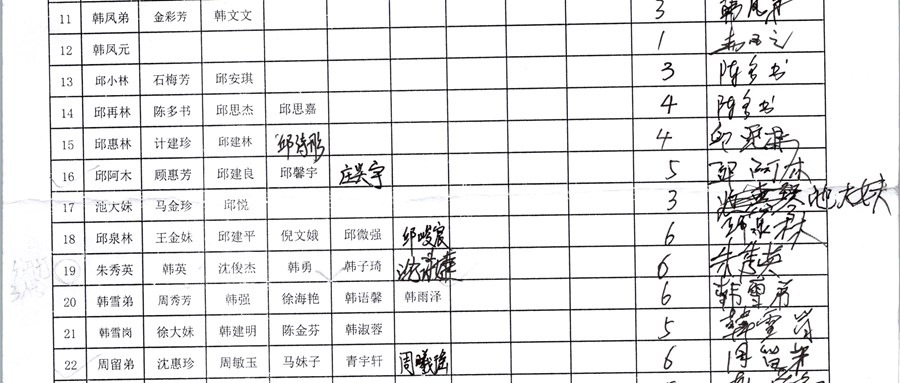 11 韩凤弟 金彩芳 韩文文 3 韩凤弟
12 韩凤元 1
13 邱小林 石梅芳 邱安琪 3 陈多书
14 邱再林 陈多书 邱思杰 邱思嘉 4 陈多书
15 邱惠林 计建珍 邱建林 邱诗彤 4
16 邱阿木 顾惠芳 邱建良 邱馨宇 庄昊宇 5 邱阿木
17 池大妹 马金珍 邱悦 3 池大妹
18 邱泉林 王金妹 邱建平 倪文娥 邱微强 邱晙宸 6 邱泉林
19 朱秀英 韩英 沈俊杰 韩勇 韩子琦 6 朱秀英
20 韩雪弟 周秀芳 韩强 徐海艳 韩语馨 韩雨泽 6 韩雪弟
21 韩雪岗 徐大妹 韩建明 陈金芬 韩淑蓉 5 韩雪岗
22 周留弟 沈惠珍 周敏玉 马妹子 青宇轩 周曦瑶 6 周留弟